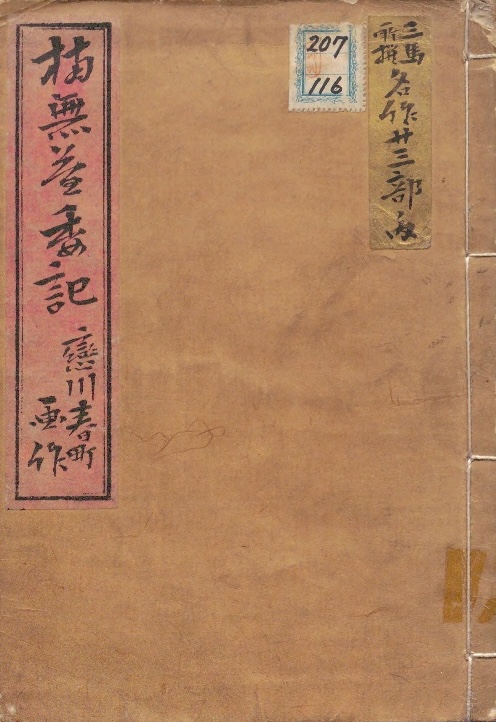 三馬
所撰
名作廿三部内
207
116
楠無益委記
戀川春町
画作